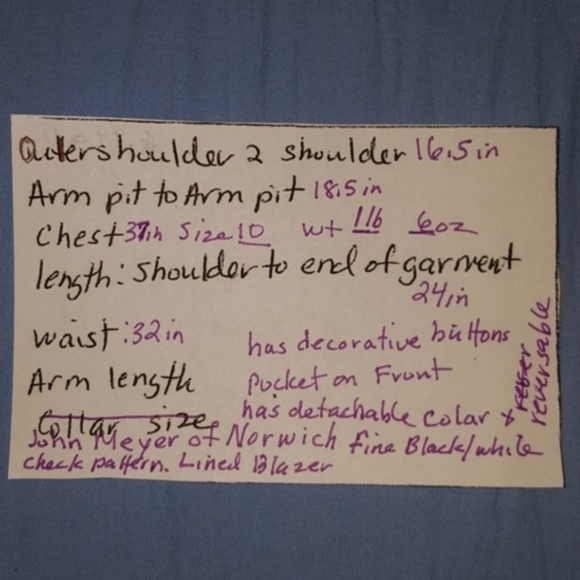 Outershoulder 2 shoulder 16.5 in
Arm pit to Arm pit 18.5 in
Chest 37in Size 10 wt 1lb 6oz
length: shoulder to end of garment
24in
waist: 32 in
has decorative buttons
Arm length
pocket on Front
Collar size
has detachable Colar +
reversable
John Meyer of Norwich fine Black/while
check pattern. Lined Blazer